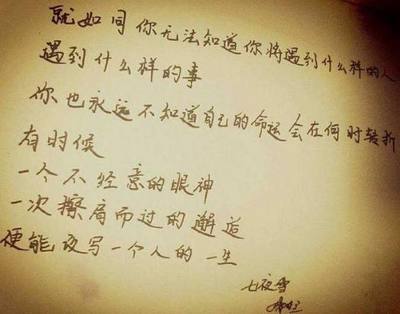 就如同你无法知道你将遇到什么样的人
遇到什么样的事
你也永远不知道自己的命运会在何时转折
有时候
一个不经意的眼神
一次擦肩而过的邂逅
便能改写一个人的一生
七夜雪